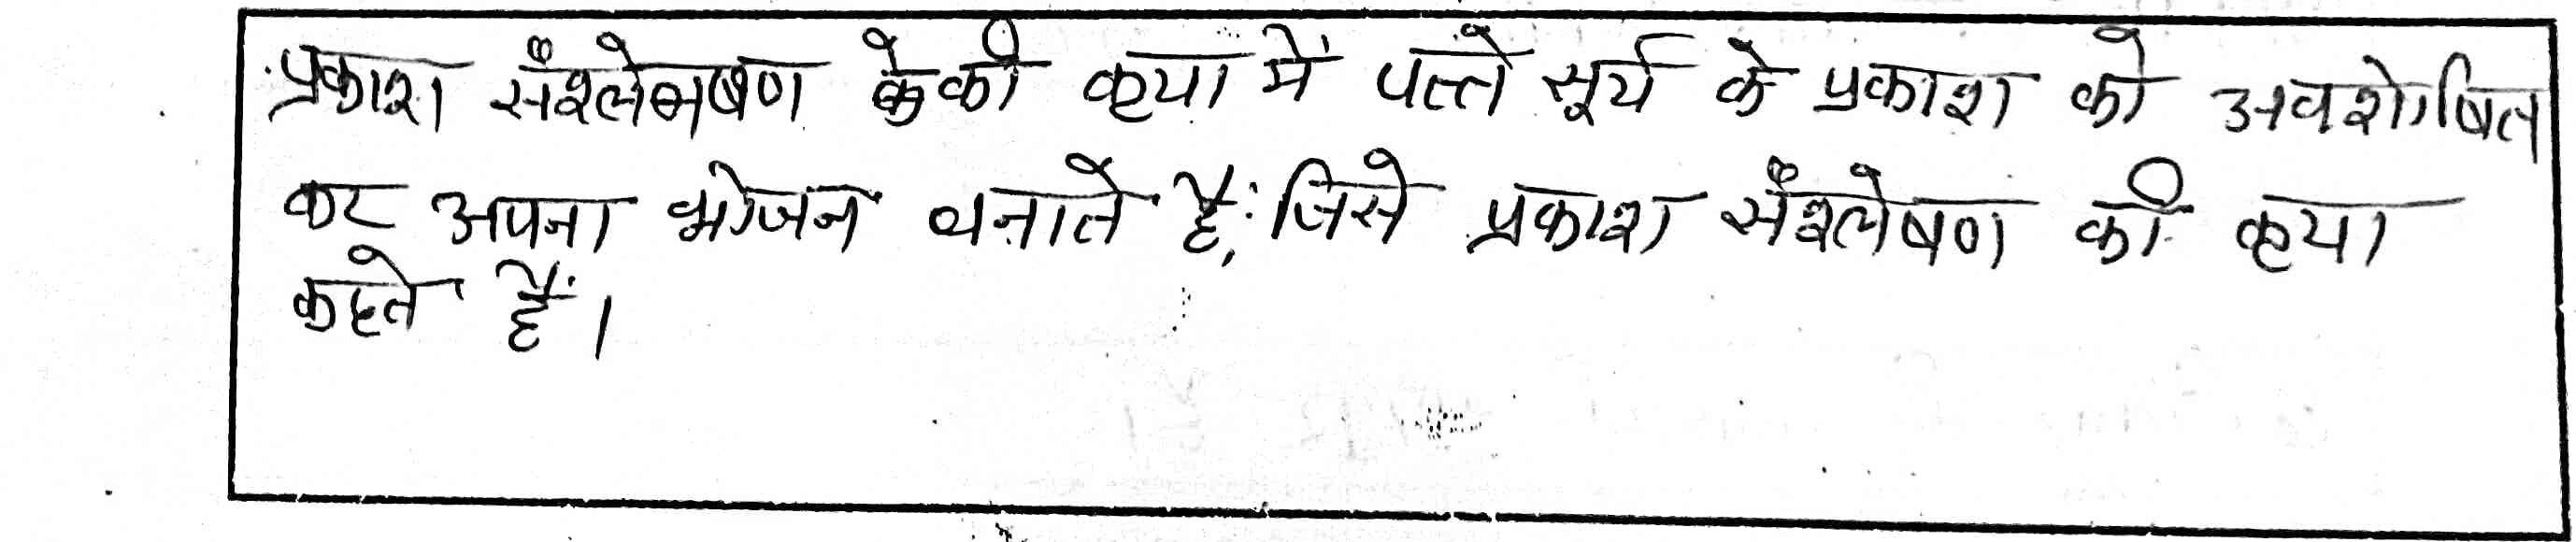 प्रकाश संश्लेषण की कृया में पत्ते सूर्य के प्रकाश को अवशोषित
कर अपना भोजन बनाते हैं, जिसे प्रकाश संश्लेषण की कृया
कहते हैं।